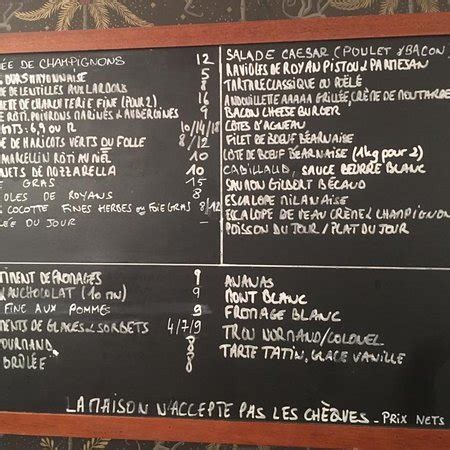 ÉE DE CHAMPIGNONS 12
OEUFS MAYONNAISE 5
E DE LENTILLES AUX LARDONS 8
ETTE DE CHARCUTERIE FINE (POUR 2) 16
E ROTI, POIVRONS MARINÉS & AUBERGINES 9
GOTS : 6, 9 OU 12 10/14/18
DE HARICOTS VERTS OU FOLLE 8/12
MARCELLIN RÔTI AU MIEL 10
NETS DE MOZZARELLA 10
GRAS 15
OLES DE ROYANS 8
COCOTTE FINES HERBES OU FOIE GRAS 8/12
ÉE DU JOUR —
SALADE CAESAR (POULET & BACON
RAVIOLES DE ROYAN PISTOU & PARMESAN
TARTARE CLASSIQUE OU POÊLÉ
ANDOUILLETTE AAAAA GRILLÉE, CRÈME DE MOUTARDE
BACON CHEESE BURGER
CÔTES D'AGNEAU
FILET DE BOEUF BÉARNAISE
CÔTE DE BOEUF BÉARNAISE (1kg POUR 2)
CABILLAUD, SAUCE BEURRE BLANC
SAUMON GILBERT BÉCAUD
ESCALOPE MILANAISE
ESCALOPE DE VEAU CRÈME & CHAMPIGNON
POISSON DU JOUR / PLAT DU JOUR
TIMENT DE FROMAGES 9
AU CHOCOLAT (10 mn) 9
FINE AUX POMMES 9
MENTS DE GLACES & SORBETS 4/7/9
GOURMAND 8
BRÛLÉE 8
ANANAS
MONT BLANC
FROMAGE BLANC
TROU NORMAND/COLONEL
TARTE TATIN, GLACE VANILLE
LA MAISON N'ACCEPTE PAS LES CHÈQUES - PRIX NETS